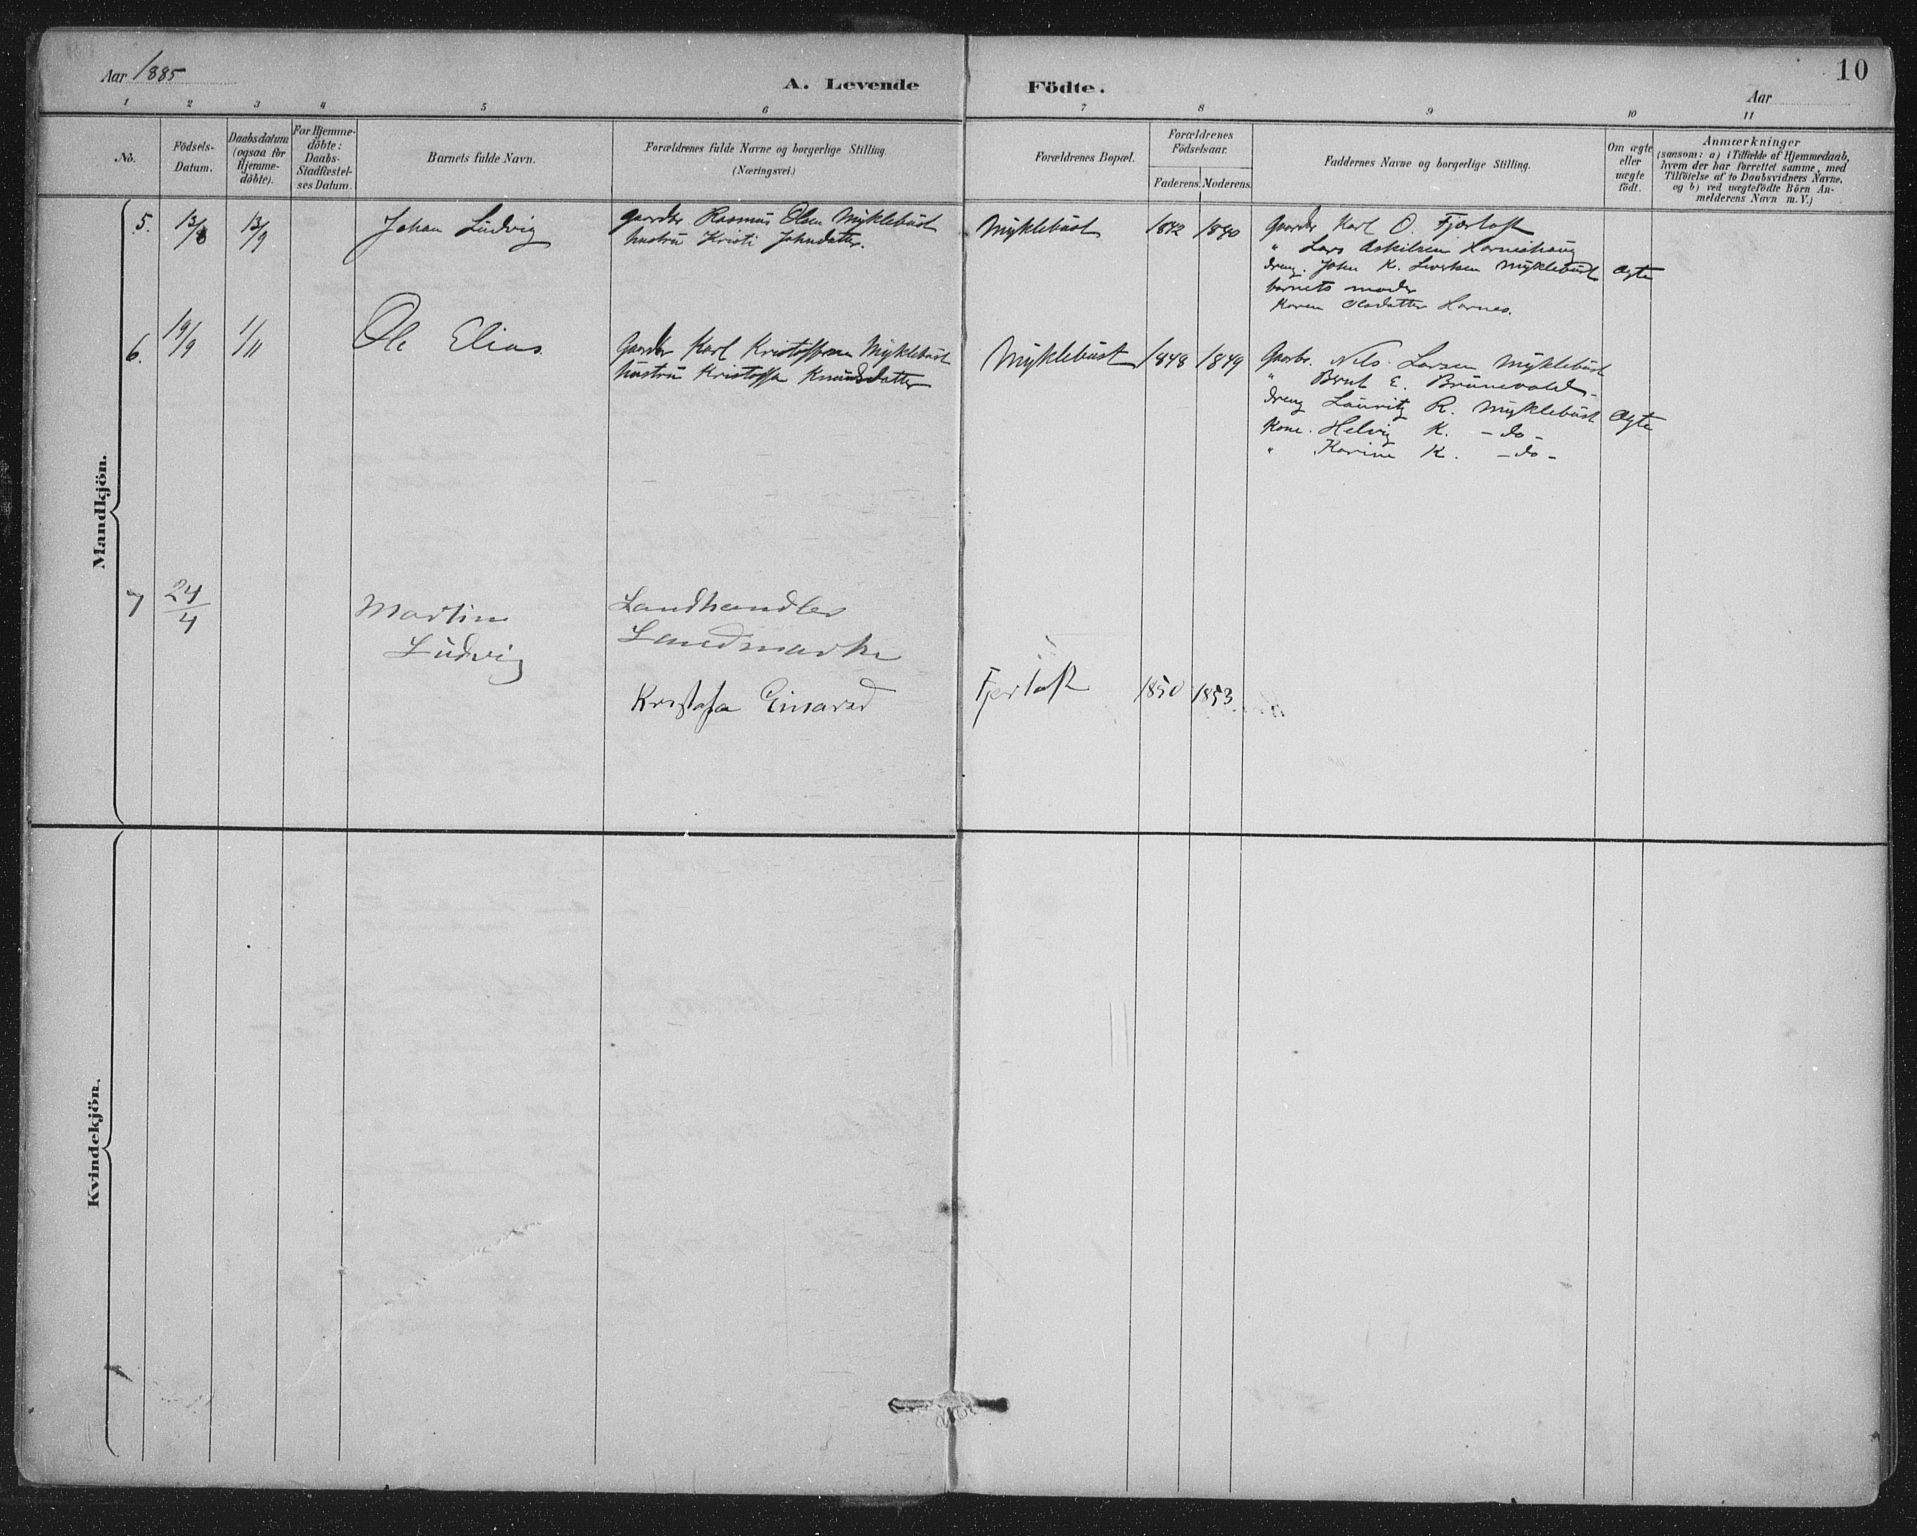 Aar 1885
A. Levende
Födte.
10
Aar
1 2 3 4 5 6 7 8 9 10 11
No.
Födsels-
Datum.
Daabsdatum
(ogsaa for
Hjemme-
döbte).
For Hjemme-
döbte:
Daabs-
Stadfæstel-
ses Datum.
Barnets fulde Navn.
Forældrenes fulde Navne og borgerlige Stilling.
(Næringsvei.)
Forældrenes Bopæl.
Forældrenes
Födselsaar.
Faderens. Moderens.
Faddernes Navne og borgerlige Stilling.
Om ægte
eller
uægte
födt.
Anmærkninger
(saasom: a) i Tilfælde af Hjemmedaab,
hvem der har forrettet samme, med
Tilföielse af to Daabsvidners Navne,
og b) ved uægtefödte Börn An-
melderens Navn m. V.)
Mandkjön.
5. 13/8 13/9
Johan Ludvig
Gaardbr Rasmus Olsen Myklebust
hustru Kristi Johndatter.
Myklebust 1842 1840
Gaardbr Karl O. Fjørtoft
" Lars Askilsen
dreng. John K. Myklebust
barnets moder
Karen Oledatter Harnes.
Ægte
6. 19/9 1/11
Ole Elias
Gaardbr Karl Kristoffersen Myklebust
hustru Kristoffa Knudsdatter
Myklebust 1848 1849
Gaarbr. Nils Larsen Myklebust
" Bernt E. Brunevold
dreng Lauritz R. Myklebust
Kone. Helvig K. -do-
" Karine K. -do-
Ægte
7 24/4
Martin
Ludvig
Landhandler
Landmarke
Kristofa Einarsd
Fjørtoft 1850 1853
Kvindekjön.